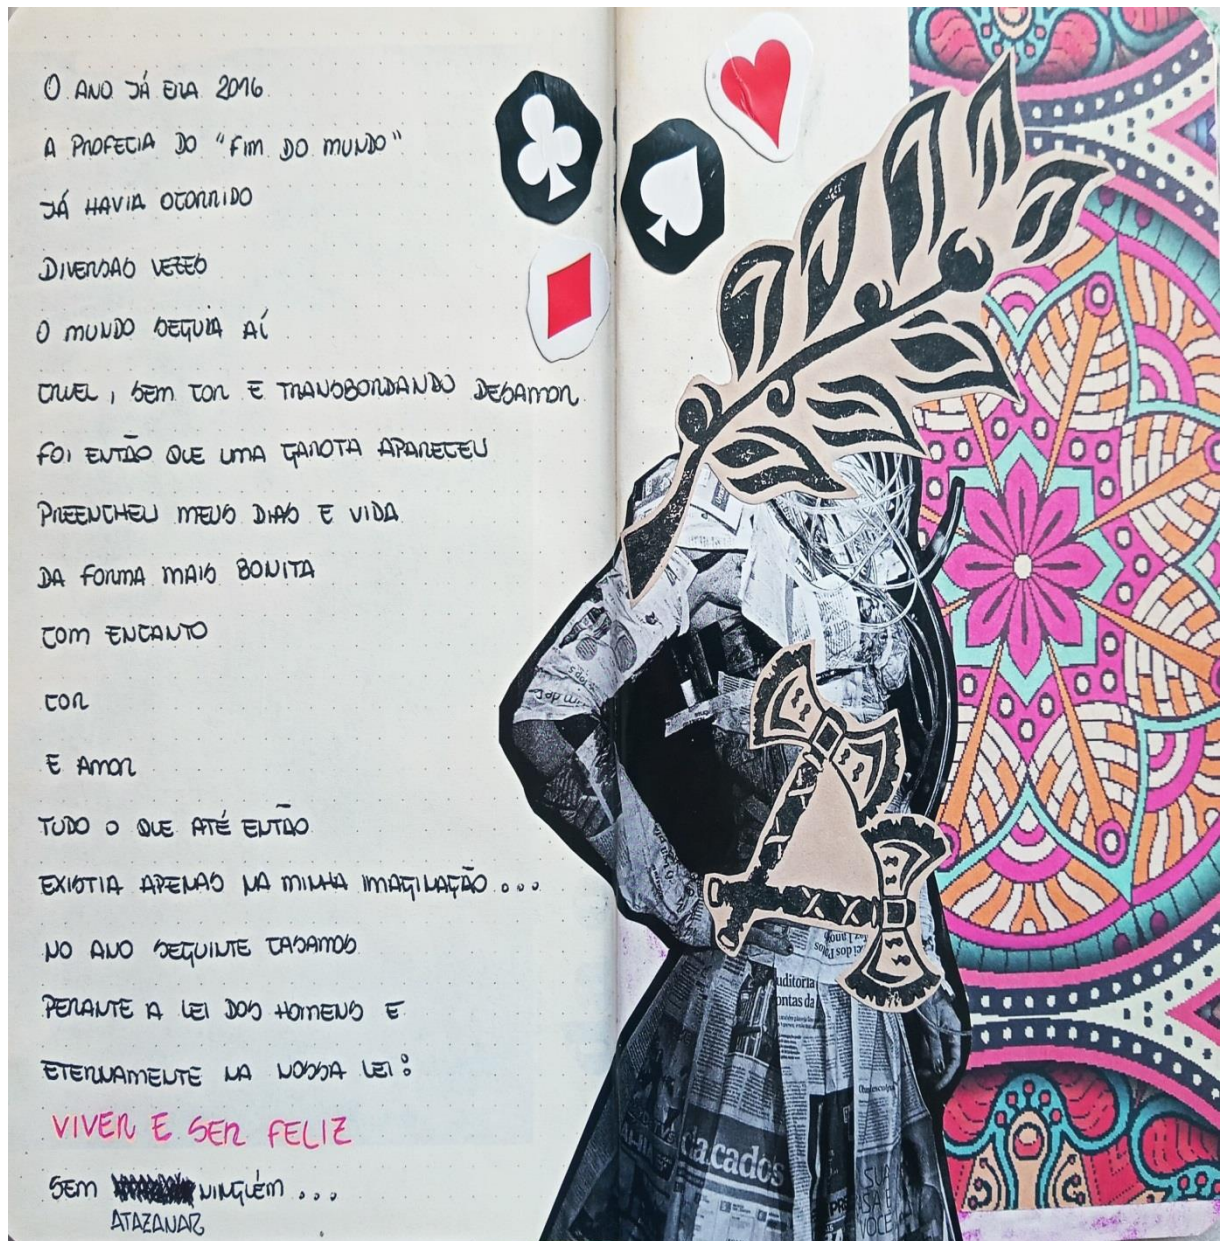 O ANO JÁ ERA 2016
A PROFECIA DO "FIM DO MUNDO"
JÁ HAVIA OCORRIDO
DIVERSAS VEZES
O MUNDO SEGUIA AÍ
CRUEL, SEM COR E TRANSBORDANDO DESAMOR.
FOI ENTÃO QUE UMA GAROTA APARECEU
PREENCHEU MEUS DIAS E VIDA
DA FORMA MAIS BONITA
COM ENCANTO
COR
E AMOR
TUDO O QUE ATÉ ENTÃO
EXISTIA APENAS NA MINHA IMAGINAÇÃO...
NO ANO SEGUINTE CASAMOS
PERANTE A LEI DOS HOMENS E
ETERNAMENTE NA NOSSA LEI:
VIVER E SER FELIZ
SEM NINGUÉM...
ATAZANAR
uditoria
ontas da
dacados